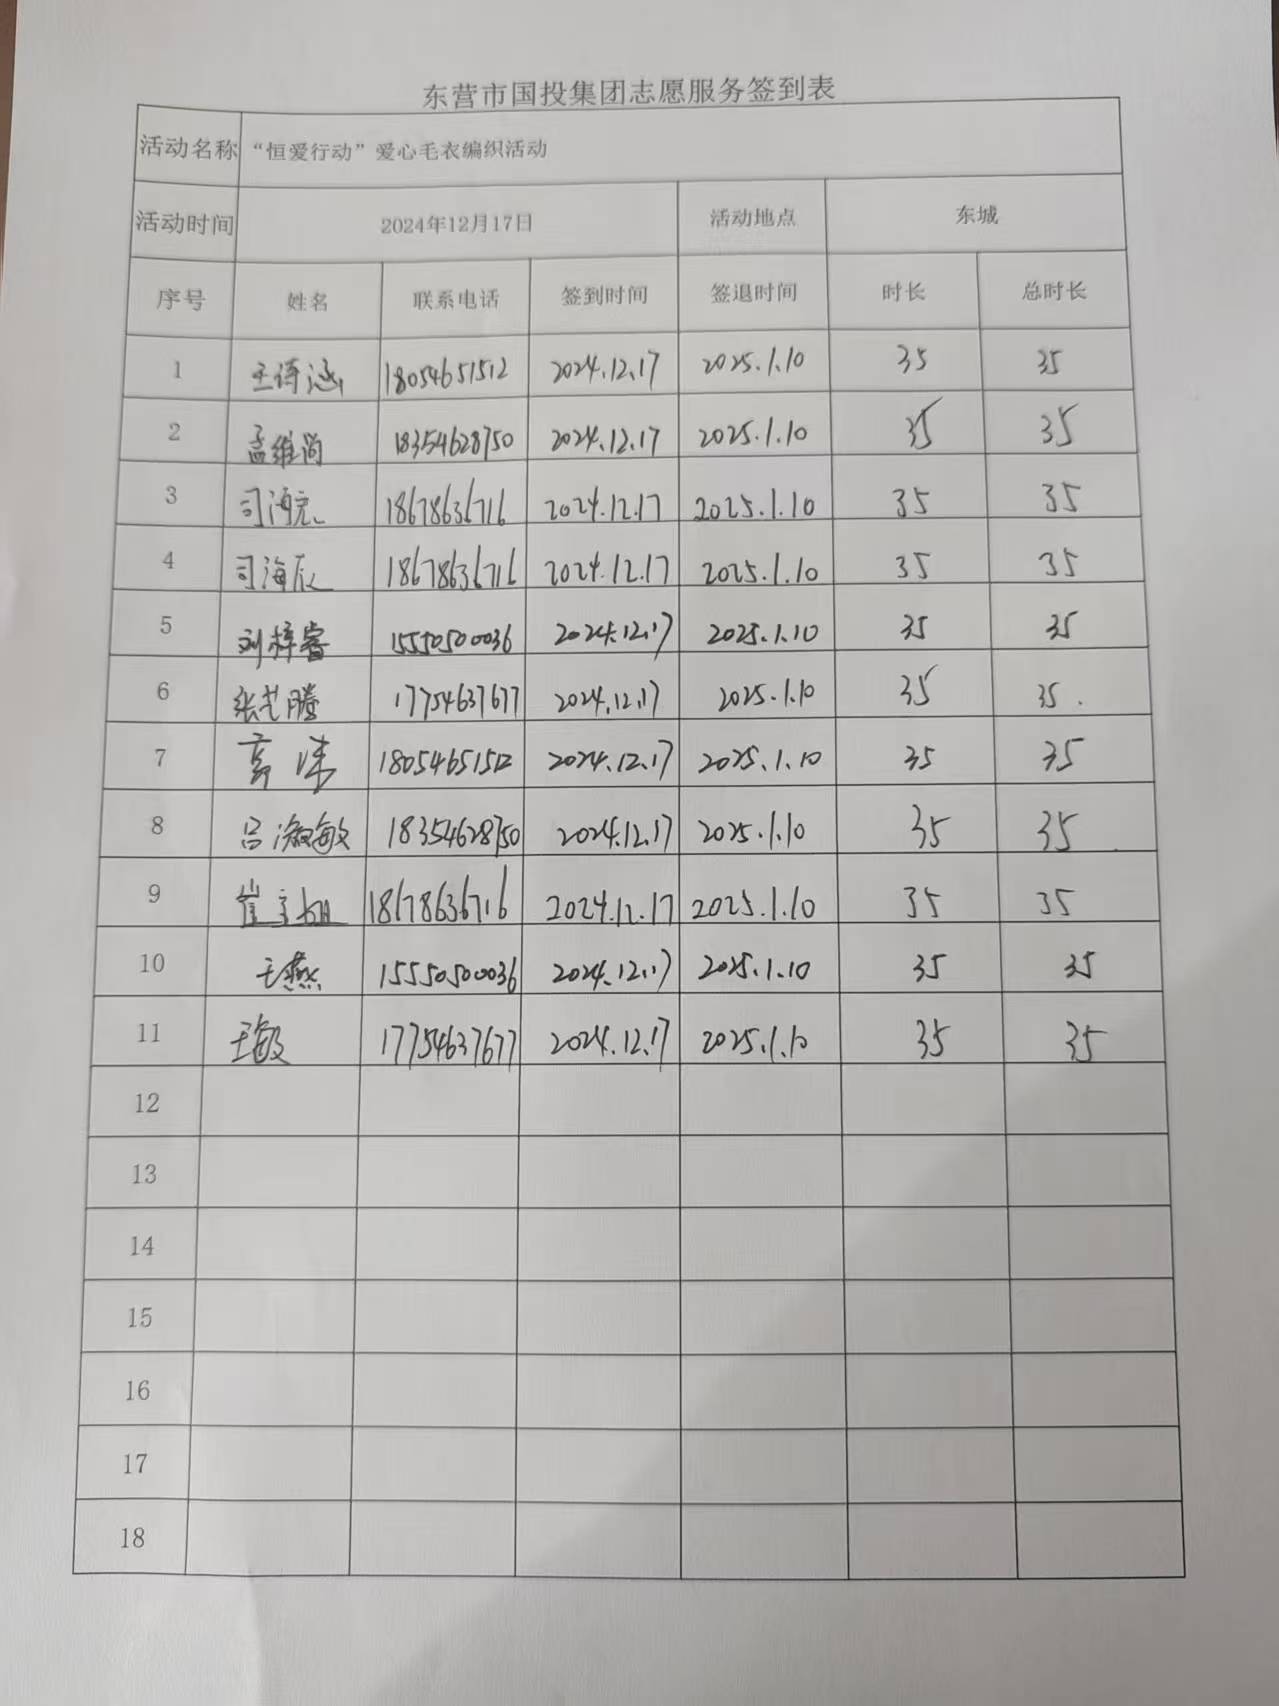 东营市国投集团志愿服务签到表
活动名称 “恒爱行动”爱心毛衣编织活动
活动时间 2024年12月17日 活动地点 东城
序号 姓名 联系电话 签到时间 签退时间 时长 总时长
1 王诗涵 18054651512 2024.12.17 2025.1.10 35 35
2 孟维尚 18354628750 2024.12.17 2025.1.10 35 35
3 司海 18678636716 2024.12.17 2025.1.10 35 35
4 司海辰 18678636716 2024.12.17 2025.1.10 35 35
5 刘梓睿 15550500036 2024.12.17 2025.1.10 35 35
6 张艺腾 17754637677 2024.12.17 2025.1.10 35 35.
7 18054651512 2024.12.17 2025.1.10 35 35
8 吕淑敏 18354628750 2024.12.17 2025.1.10 35 35
9 崔 18678636716 2024.12.17 2025.1.10 35 35
10 王燕 15550500036 2024.12.17 2025.1.10 35 35
11 王敏 17754637677 2024.12.17 2025.1.10 35 35
12
13
14
15
16
17
18